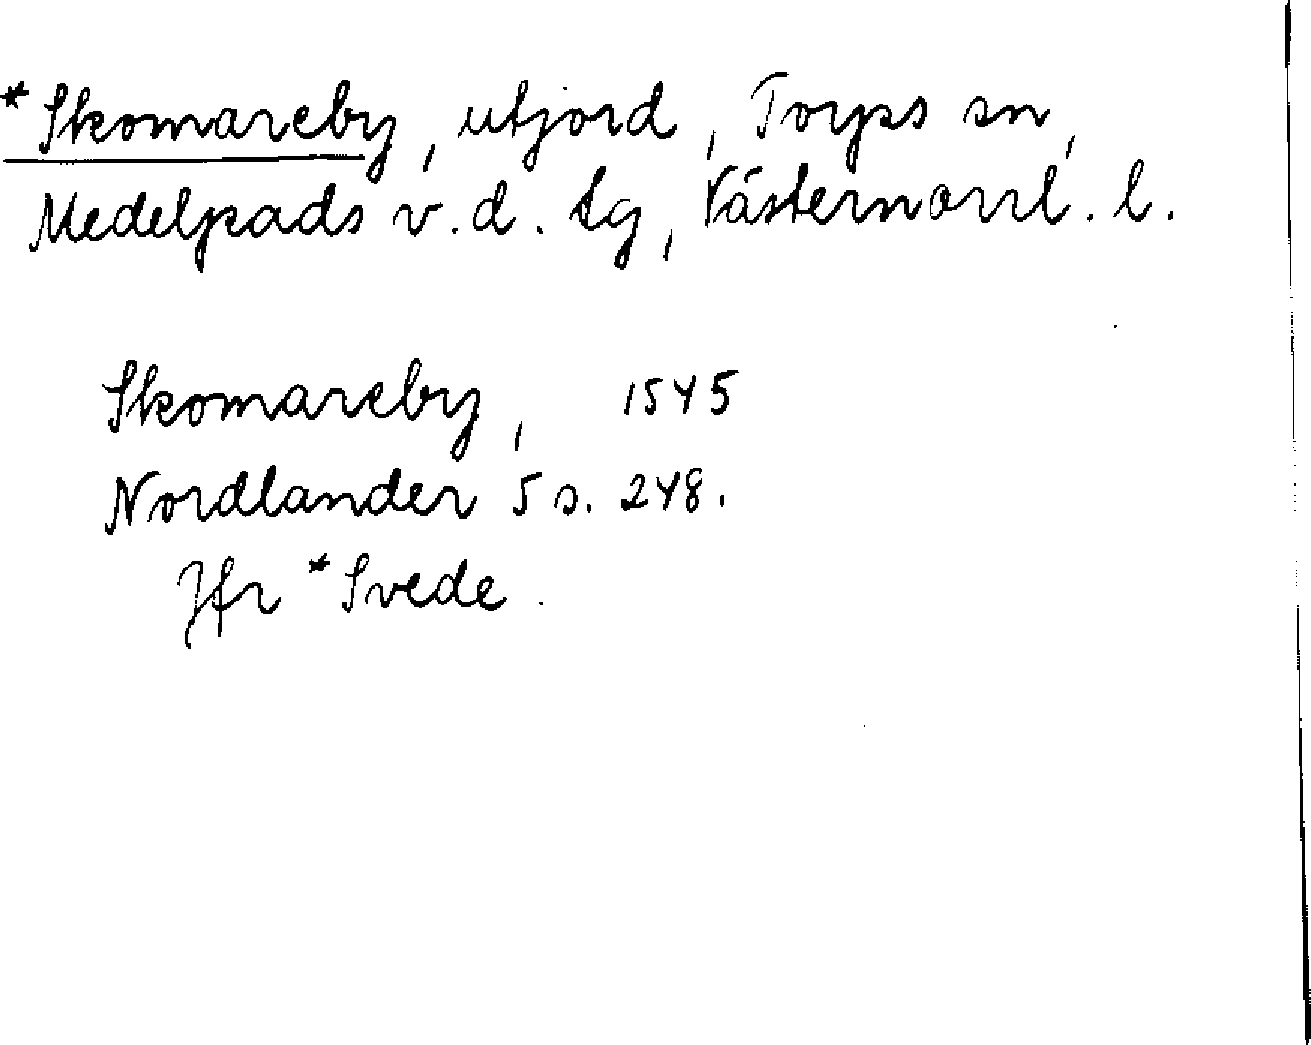 *Skomareby, utjord, Torps sn,
Medelpads v.d. tg, Västernorrl. l.
Skomareby, 1545
Nordlander 5 s. 248.
Jfr *Svede.